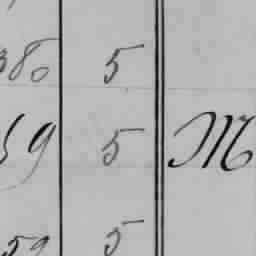 380 5
59 5 M
59 5